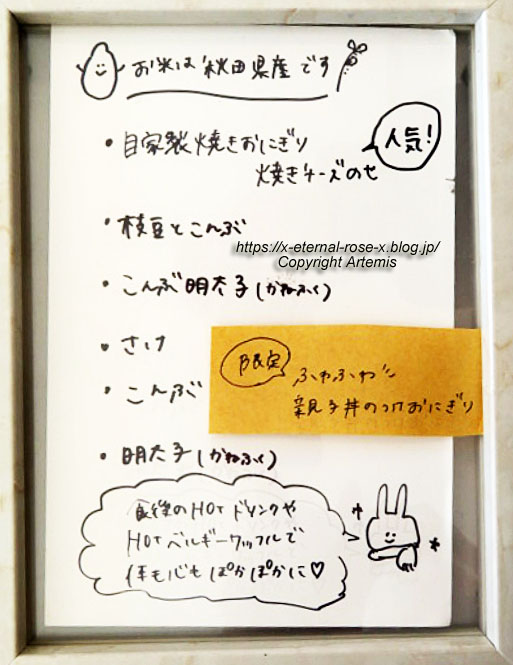 お米は秋田県産です
・自家製焼きおにぎり
焼きチーズのせ
人気!
・枝豆とこんぶ
https://x-eternal-rose-x.blog.jp/
Copyright Artemis
・こんぶ明太子(かねふく)
・さけ
・こんぶ
限定
ふわふわ
親子丼のっけおにぎり
・明太子(かねふく)
食後のHOTドリンクや
HOTベルギーワッフルで
体も心もぽかぽかに♡